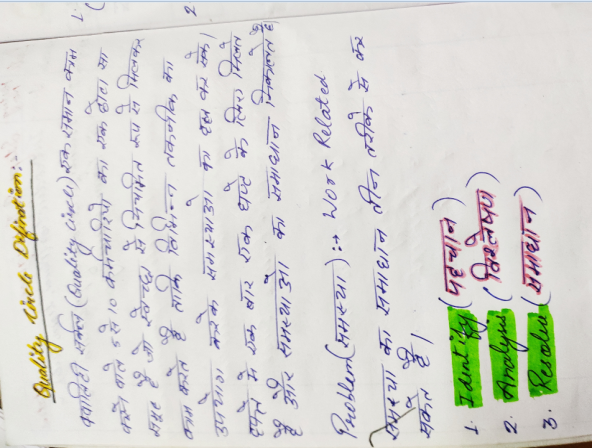 Quality Circle Definition:-
क्वालिटी सर्कल (Quality Circle) एक समान काम
करने वाले 5 से 10 कर्मचारियों का एक छोटा सा
समूह है जो स्वेच्छा से नियमित रूप से मिलकर
काम करते हैं ताकि विभिन्न तकनीक का
उपयोग करके समस्याओं का हल कर सके।
हफ्ते में एक बार एक घंटे के लिए मिलते
हैं और समस्याओं का समाधान निकालते हैं
Problem (समस्या) :-> Work Related
समस्या का समाधान तीन तरीके से कर
सकते हैं।
1. Identify (पहचान)
2. Analysis (विश्लेषण)
3. Resolve (समाधान)
1.
2